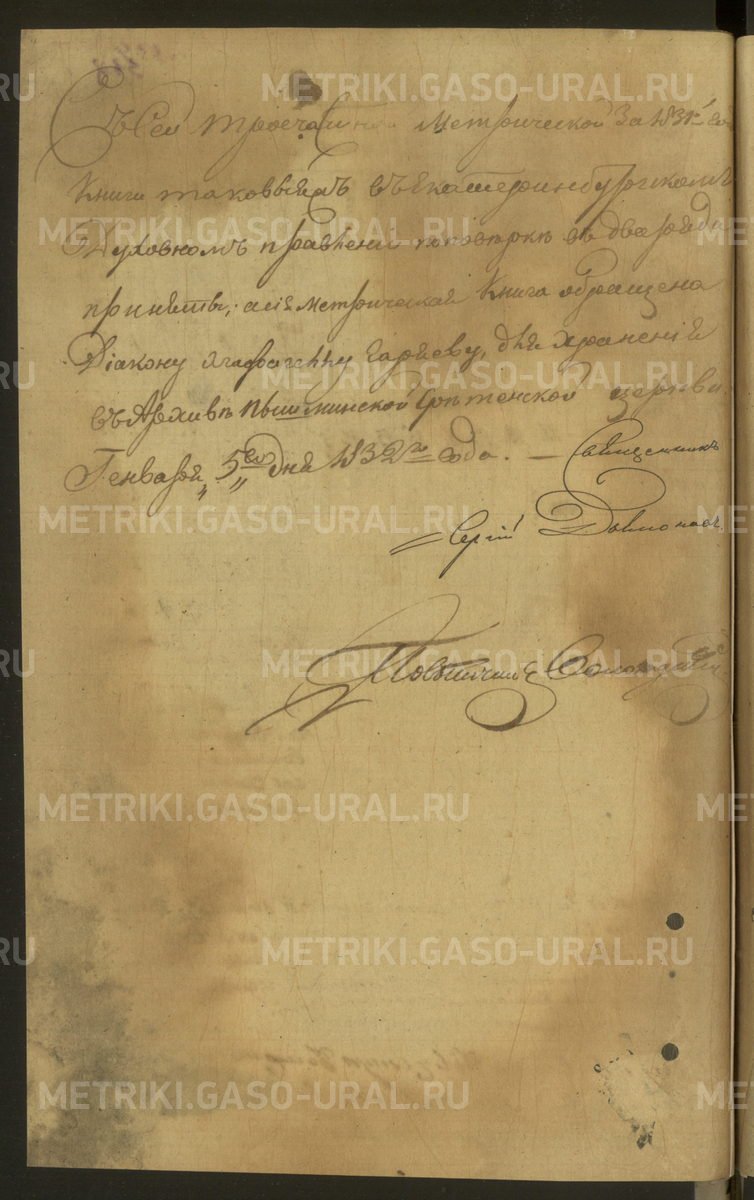 Съ сей троечас[т]ной Метрической за 1831й годъ
Книги таковыяжъ въ Екатеринбургскомъ
Духовномъ правленіи по повѣркѣ въ два ряди
приняты; а сія метрическая Книга обращена
Діакону Агафагену Гаряеву, для храненія
въ Архивѣ Пышминской Срѣтенской церкви.
Генваря „5го„ дня 1832го года. — Священникъ
Сергій
METRIKI.GASO-URAL.RU